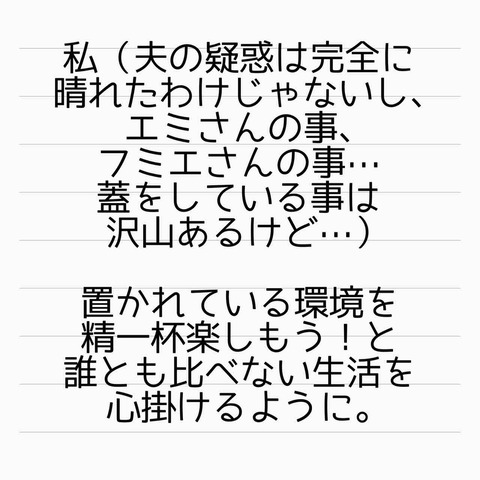 私（夫の疑惑は完全に
晴れたわけじゃないし、
エミさんの事、
フミエさんの事…
蓋をしている事は
沢山あるけど…）
置かれている環境を
精一杯楽しもう！と
誰とも比べない生活を
心掛けるように。